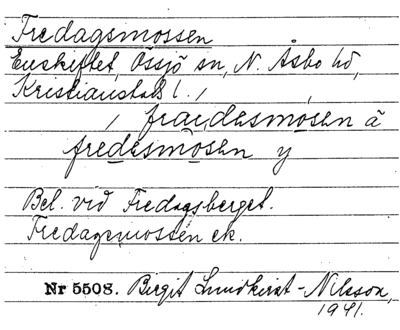 Fredagsmossen
Enskiftet, Össjö sn, N. Åsbo hd,
Kristianstads l.,
fraidesmosen ä
fredesmosen y
Bel. vid Fredagsberget.
Fredagsmossen ek.
Nr 5508. Birgit Lundkvist-Nilsson,
1941.